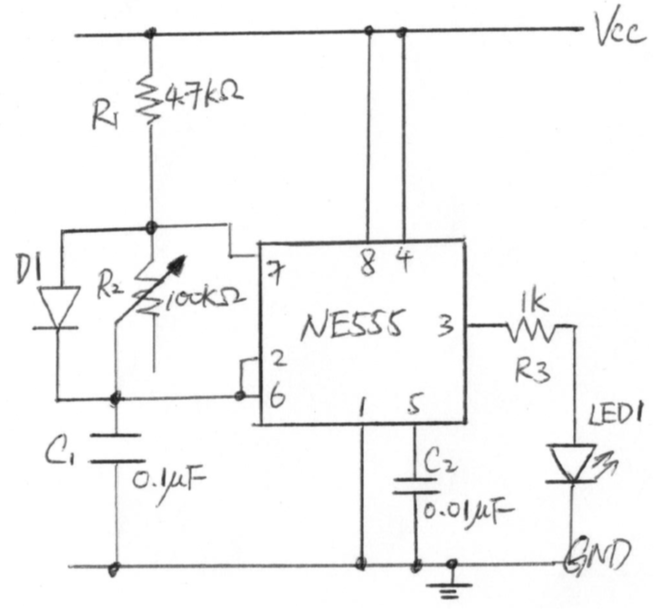 Vcc
R1
4.7kΩ
D1
R2
100kΩ
7
8
4
NE555
3
2
6
1
5
1k
R3
LED1
C1
0.1μF
C2
0.01μF
GND